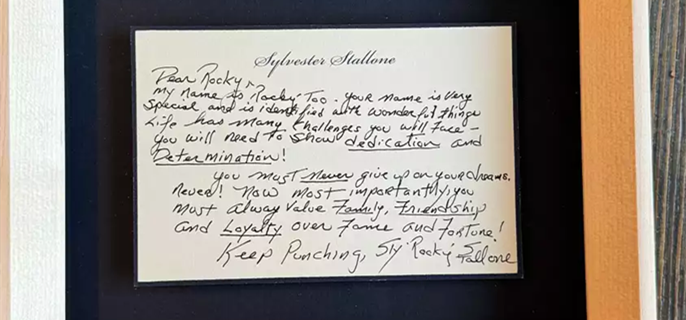 Sylvester Stallone
Dear Rocky,
my name is "Rocky" Too - your name is very
special and is identified with wonderful things
Life has many challenges you will face -
you will need to show dedication and
Determination!
you must never give up on your dreams.
Never! Now most importantly, you
must alway value Family, Friendship
and Loyalty over Fame and Fortune!
Keep Punching, Sly "Rocky" Stallone